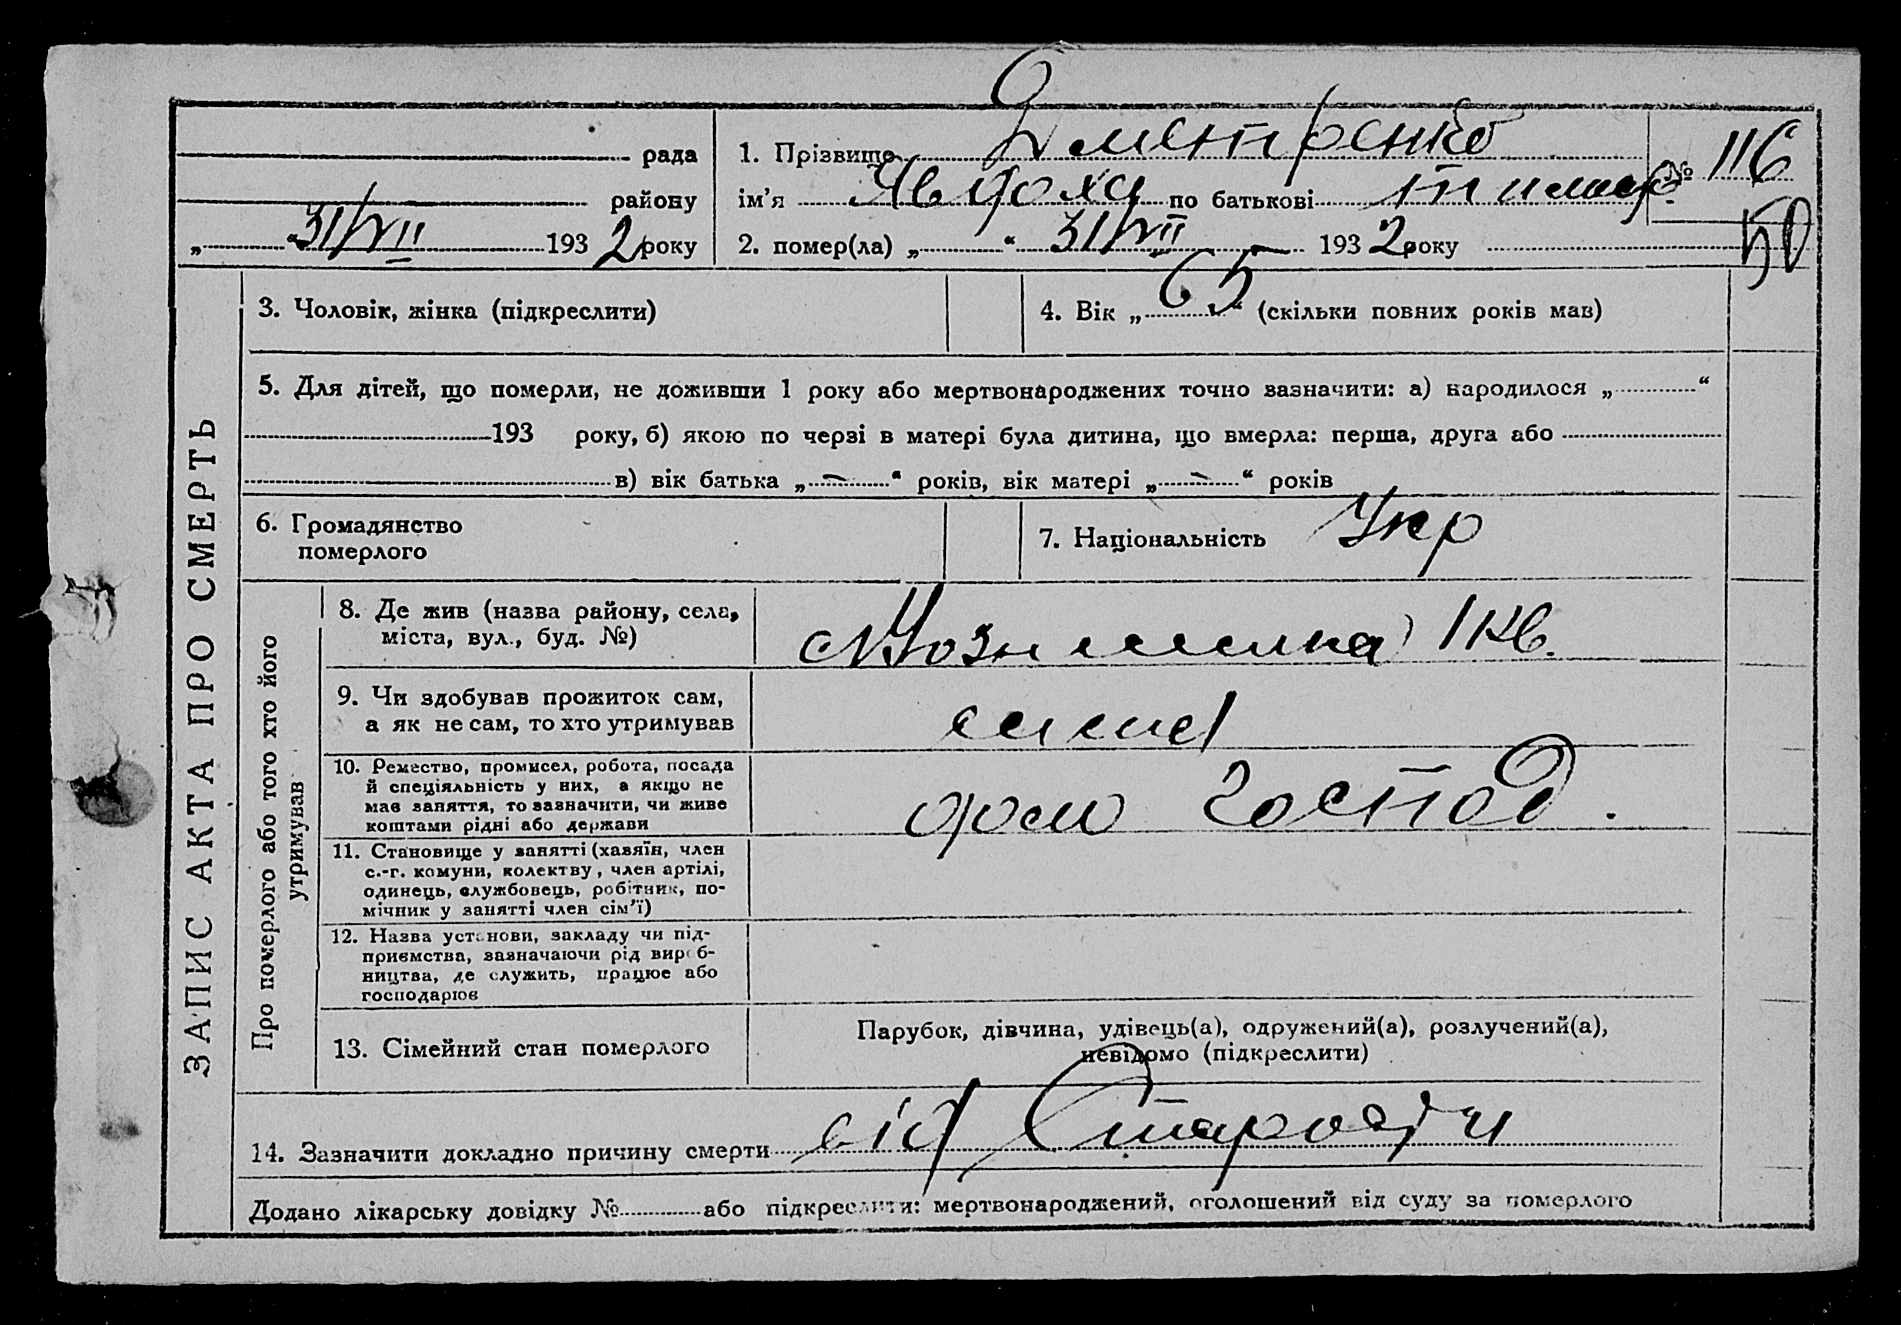 ЗАПИС АКТА ПРО СМЕРТЬ
рада
району
„ 31/VII 1932 року
1. Прізвище Дметренко
ім'я Явдоха по батькові
№ 116
2. помер(ла) „ “ 31/VII 1932 року
50
3. Чоловік, жінка (підкреслити)
4. Вік „ 65 “ (скільки повних років мав)
5. Для дітей, що померли, не доживши 1 року або мертвонароджених точно зазначити: а) народилося „ “
193 року, б) якою по черзі в матері була дитина, що вмерла: перша, друга або
в) вік батька „ – “ років, вік матері „ – “ років
6. Громадянство
померлого
7. Національність Укр
Про померлого або того хто його
утримував
8. Де жив (назва району, села,
міста, вул., буд. №)
1 кв.
9. Чи здобував прожиток сам,
а як не сам, то хто утримував
10. Ремество, промисел, робота, посада
й спеціяльність у них, а якщо не
мав заняття, то зазначити, чи живе
коштами рідні або держави
господ.
11. Становище у занятті (хазяїн, член
с.-г. комуни, колективу, член артілі,
одинець, службовець, робітник, по-
мічник у занятті член сім'ї)
12. Назва установи, закладу чи під-
приємства, зазначаючи рід вироб-
ництва, де служить, працює або
господарює
13. Сімейний стан померлого
Парубок, дівчина, удівець(а), одружений(а), розлучений(а),
невідомо (підкреслити)
14. Зазначити докладно причину смерти від Старости
Додано лікарську довідку № або підкреслити: мертвонароджений, оголошений від суду за померлого